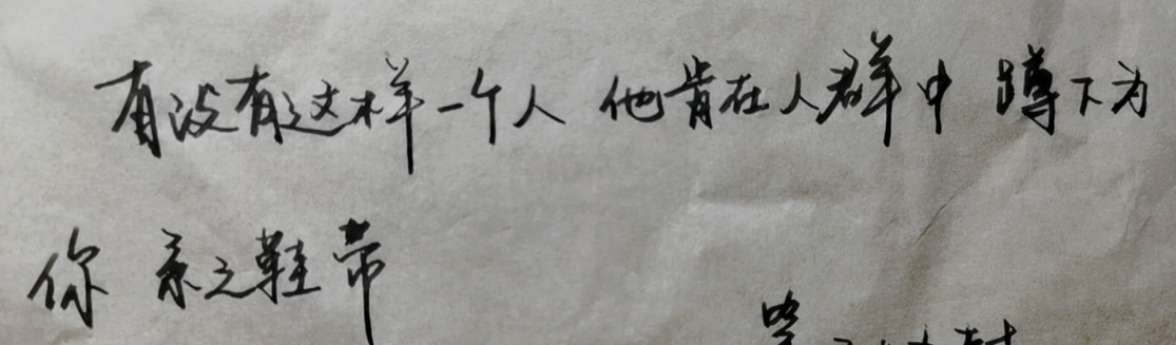 有没有这样一个人 他肯在人群中 蹲下为
你 系之鞋带